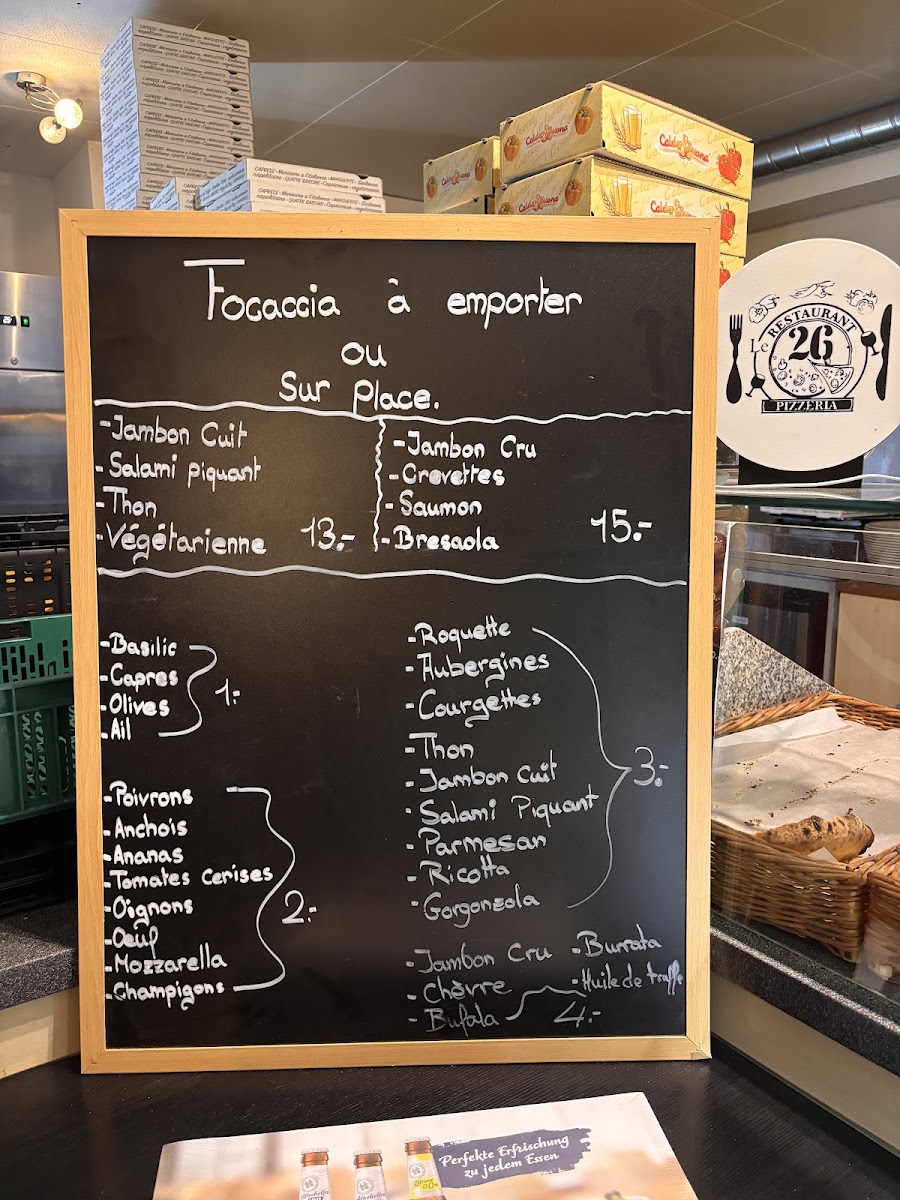 CAPRESE - Marinara a l'italienne - MARGUERITE - Siciliana
napolitaine - QUATRE SAISONS - Capricieuse - vegetarienne
Calda & Buona
Calda & Buona
Calda & Buona
Calda & Buona
Focaccia à emporter
ou
Sur Place.
-Jambon Cuit
-Salami piquant
-Thon
-Végétarienne 13.-
-Jambon Cru
-Crevettes
-Saumon
-Bresaola 15.-
-Basilic
-Capres
-Olives
-Ail
1.-
-Poivrons
-Anchois
-Ananas
-Tomates Cerises
-Oignons
-Oeuf
-Mozzarella
-Champigons
2.-
-Roquette
-Aubergines
-Courgettes
-Thon
-Jambon Cuit
-Salami Piquant
-Parmesan
-Ricotta
-Gorgonzola
3.-
-Jambon Cru -Burrata
-Chèvre -Huile de truffe
-Bufala 4.-
Le RESTAURANT
26
PIZZERIA
Perfekte Erfrischung
zu jedem Essen